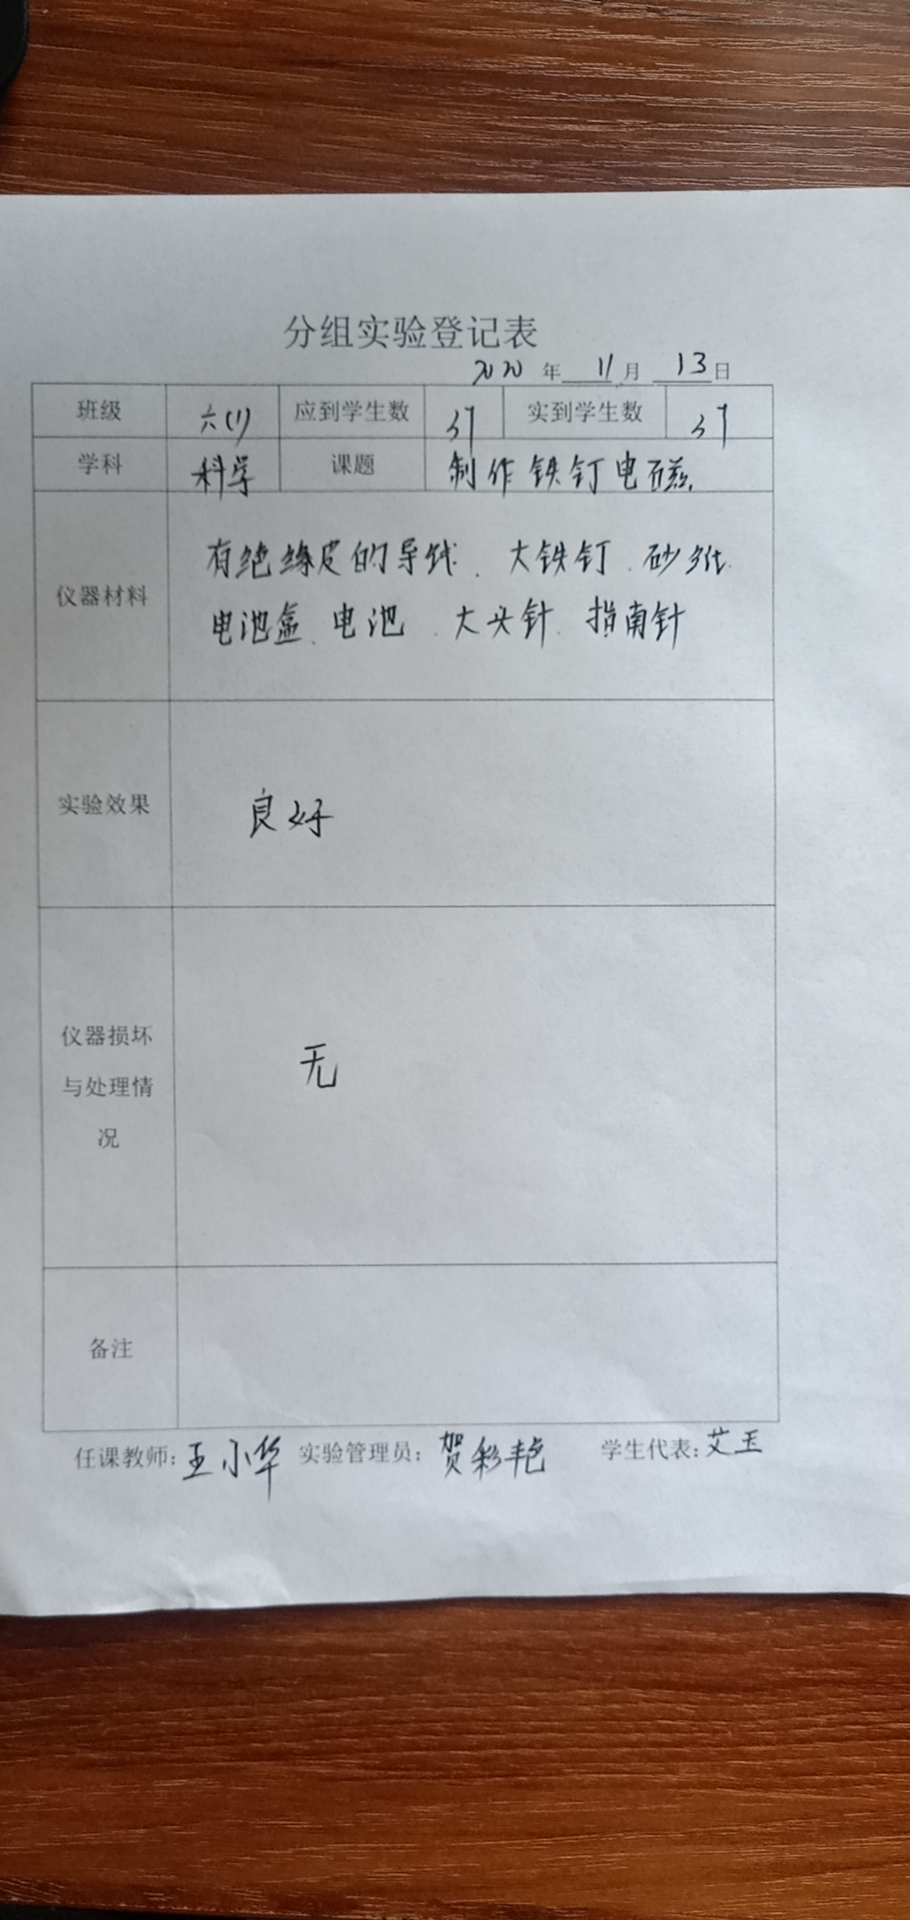 分组实验登记表
2020 年 11 月 13 日
班级 六(1) 应到学生数 37 实到学生数 37
学科 科学 课题 制作铁钉电磁
仪器材料 有绝缘皮的导线、大铁钉、砂纸、
电池盒、电池、大头针、指南针
实验效果 良好
仪器损坏
与处理情
况
无
备注
任课教师:王小华 实验管理员:贺彩艳 学生代表:艾玉